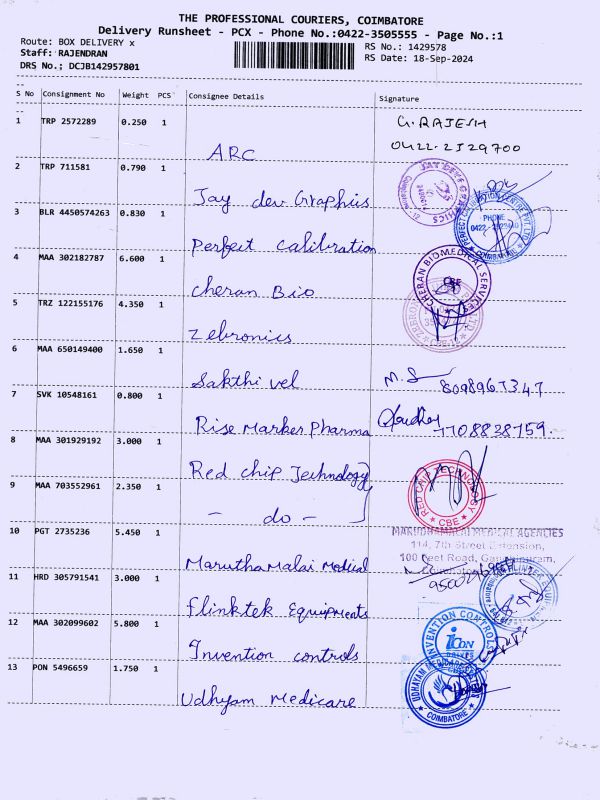 THE PROFESSIONAL COURIERS, COIMBATORE
Delivery Runsheet - PCX - Phone No.:0422-3505555 - Page No.:1
Route: BOX DELIVERY x
Staff: RAJENDRAN
DRS No.; DCJB142957801
RS No.: 1429578
RS Date: 18-Sep-2024
S No Consignment No Weight PCS Consignee Details Signature
1 TRP 2572289 0.250 1 ARC G.RAJESH
0422-2529700
2 TRP 711581 0.790 1 Jay dev Graphics
3 BLR 4450574263 0.830 1 Perfect Calibration
PHONE
4 MAA 302182787 6.600 1 Cheran Bio
CHERAN BIOMEDICAL SERVICES
CBE
5 TRZ 122155176 4.350 1 Zebronics
6 MAA 650149400 1.650 1 Sakthi vel
7 SVK 10548161 0.800 1 Rise Marker Pharma
7708838759
8 MAA 301929192 3.000 1 Red chip Technology
RED CHIP TECHNOLOGY
CBE
9 MAA 703552961 2.350 1 - do -
10 PGT 2735236 5.450 1 Maruthamalai Medical
114, 7th Street Extension,
100 Feet Road, Gandhipuram,
11 HRD 305791541 3.000 1 Flinktek Equipments
12 MAA 302099602 5.800 1 Invention controls
INVENTION CONTROLS
iCon
13 PON 5496659 1.750 1 Udhyam Medicare
COIMBATORE